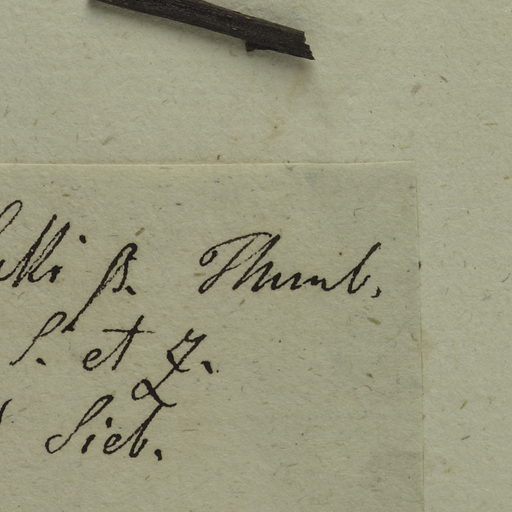 β. Thunb.
S. et Z.
Sieb.